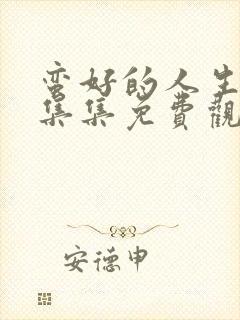 蛮好的人生
集集免費觀
安德申